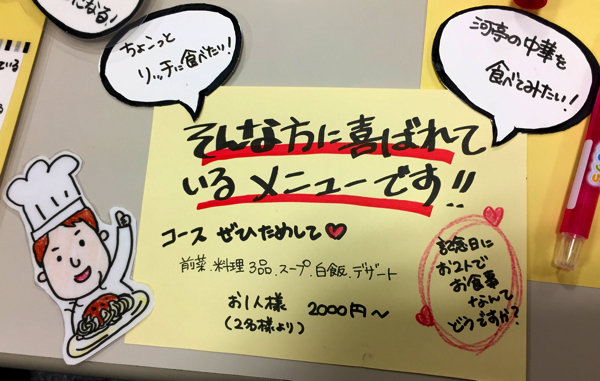 になる!
ちょこっと
リッチに食べたい!
河亭の中華を
食べてみたい!
そんな方に喜ばれて
いるメニューです!!
コース ぜひためして
前菜.料理3品.スープ.白飯.デザート
お1人様 2000円〜
(2名様より)
記念日に
お2人で
お食事
なんて
どうですか?